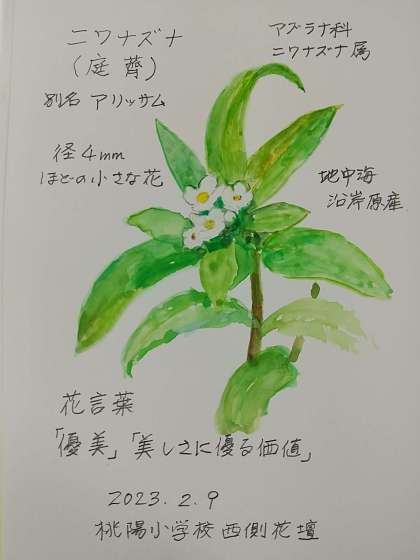 ニワナズナ
(庭薺)
別名 アリッサム
アブラナ科
ニワナズナ属
径4mm
ほどの小さな花
地中海
沿岸原産
花言葉
「優美」「美しさに優る価値」
2023.2.9
桃陽小学校西側花壇